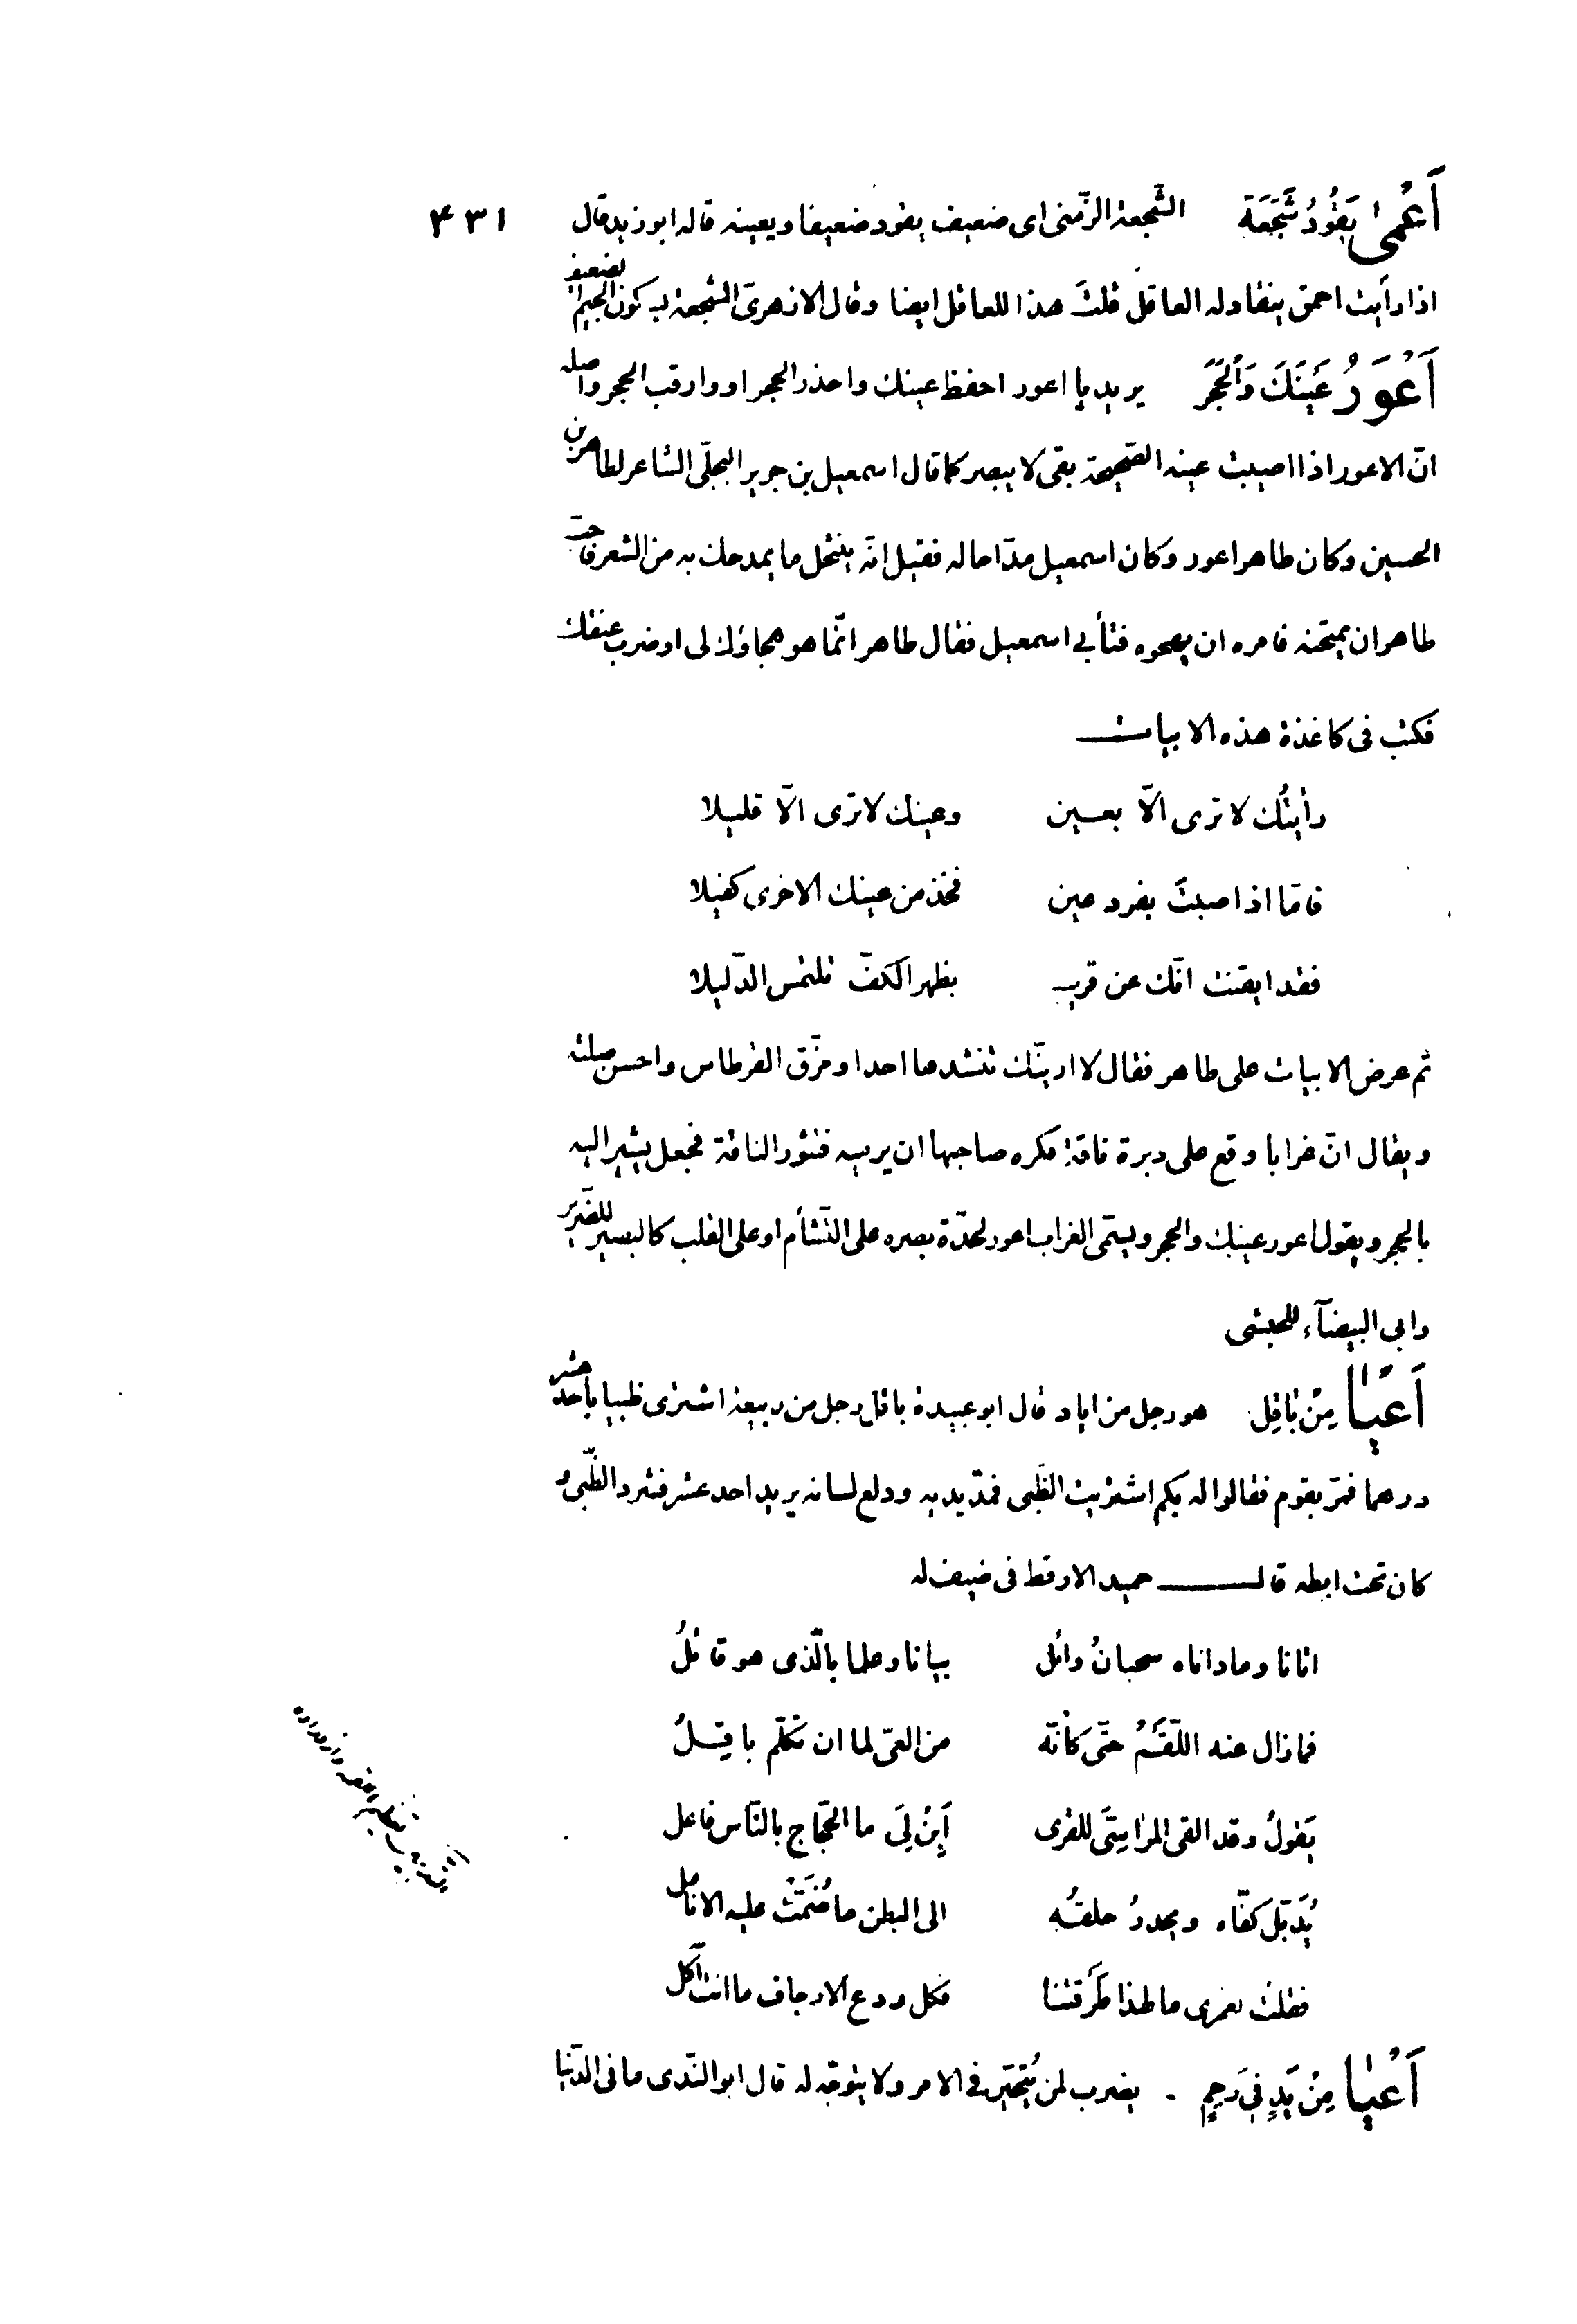 ٤٣١
أَعْمى يَقُودُ شَجْعَة الشّجعة الزّمنى اى ضعيف يقود ضعيفا ويعينه قاله ابو زيد قال
اذا رأيت احمق ينقاد له العاقل قلتَ هذا للعاقل ايضا وقال الازهرىّ الشجعة بسكون الجيم الضعيف
أَعْوَرُ عَيْنَكَ وَالْحَجَرَ يريد يا اعور احفظ عينك واحذر الحجر او وارقب الحجر واصله
انّ الاعور اذا اصيبت عينه الصّحيحة بقى لا يبصر كما قال اسمعيل بن جرير البجلّى الشاعر لطاهر بن
الحسين وكان طاهر اعور وكان اسمعيل مدّاحا له فقيل انّه ينتحل ما يمدحك به من الشعر فاحبّ
طاهر ان يمتحنه فامره ان يهجوه فتأبى اسمعيل فقال طاهر انّما هو هجاؤك لى او ضرب عنقك
فكتب فى كاغذة هذه الابيات
رأيتُك لا ترى الّا بعين وعينك لا ترى الّا قليلا
فامّا اذا اصبتَ بفرد عين فخذ من عينك الاخرى كفيلا
فقد ايقنت انّك عن قريب بظهر الكفّ تلتمس الدّليلا
ثم عرض الابيات على طاهر فقال لا ارينّك تنشدها احدا ومزّق القرطاس واحسن صلته
ويقال انّ غرابا وقع على دبرة ناقة فكره صاحبها ان يرميه فتثور الناقة فجعل يشير اليه
بالحجر ويقول اعور عينك والحجر ويسمّى الغراب اعور لحدّة بصره على التّشأم او على القلب كالبصير للضّرير
وابى البيضآء للحبشى
أَعْيَا مِنْ بَاقِل هو رجل من اياد قال ابو عبيدة باقل رجل من ربيعة اشترى ظبيا باحد عشر
درهما فمرّ بقوم فقالوا له بكم اشتريت الظّبى فمدّ يديه ودلع لسانه يريد احد عشر فشرد الظّبى و
كان تحت ابطه قال حميد الارقط فى ضيف له
اتانا وما داناه سحبانُ وائل بيانا وعلما بالّذى هو قائلُ
فما زال عنه اللّقْمُ حتّى كأنّه من العىّ لما ان تكلّم باقلُ
يَقولُ وقد القى المراسِىَ للقرى أَبِنْ لِىَ ما الحجّاج بالنّاس فاعل
يُدَبّل كفّاه ويحدرُ حلقُه الى البطن ما ضُمَّتْ عليه الانامل
فقلت لعمرى ما لهذا طَرَقتنا فكل ودع الارجاف ما انت آكل
أَعْيَا مِنْ يَدٍ فِى رَحِمٍ يضرب لمن يُتحيّر فى الامر ولا يتوجّه له قال ابو النّدى ما فى الدّنيا